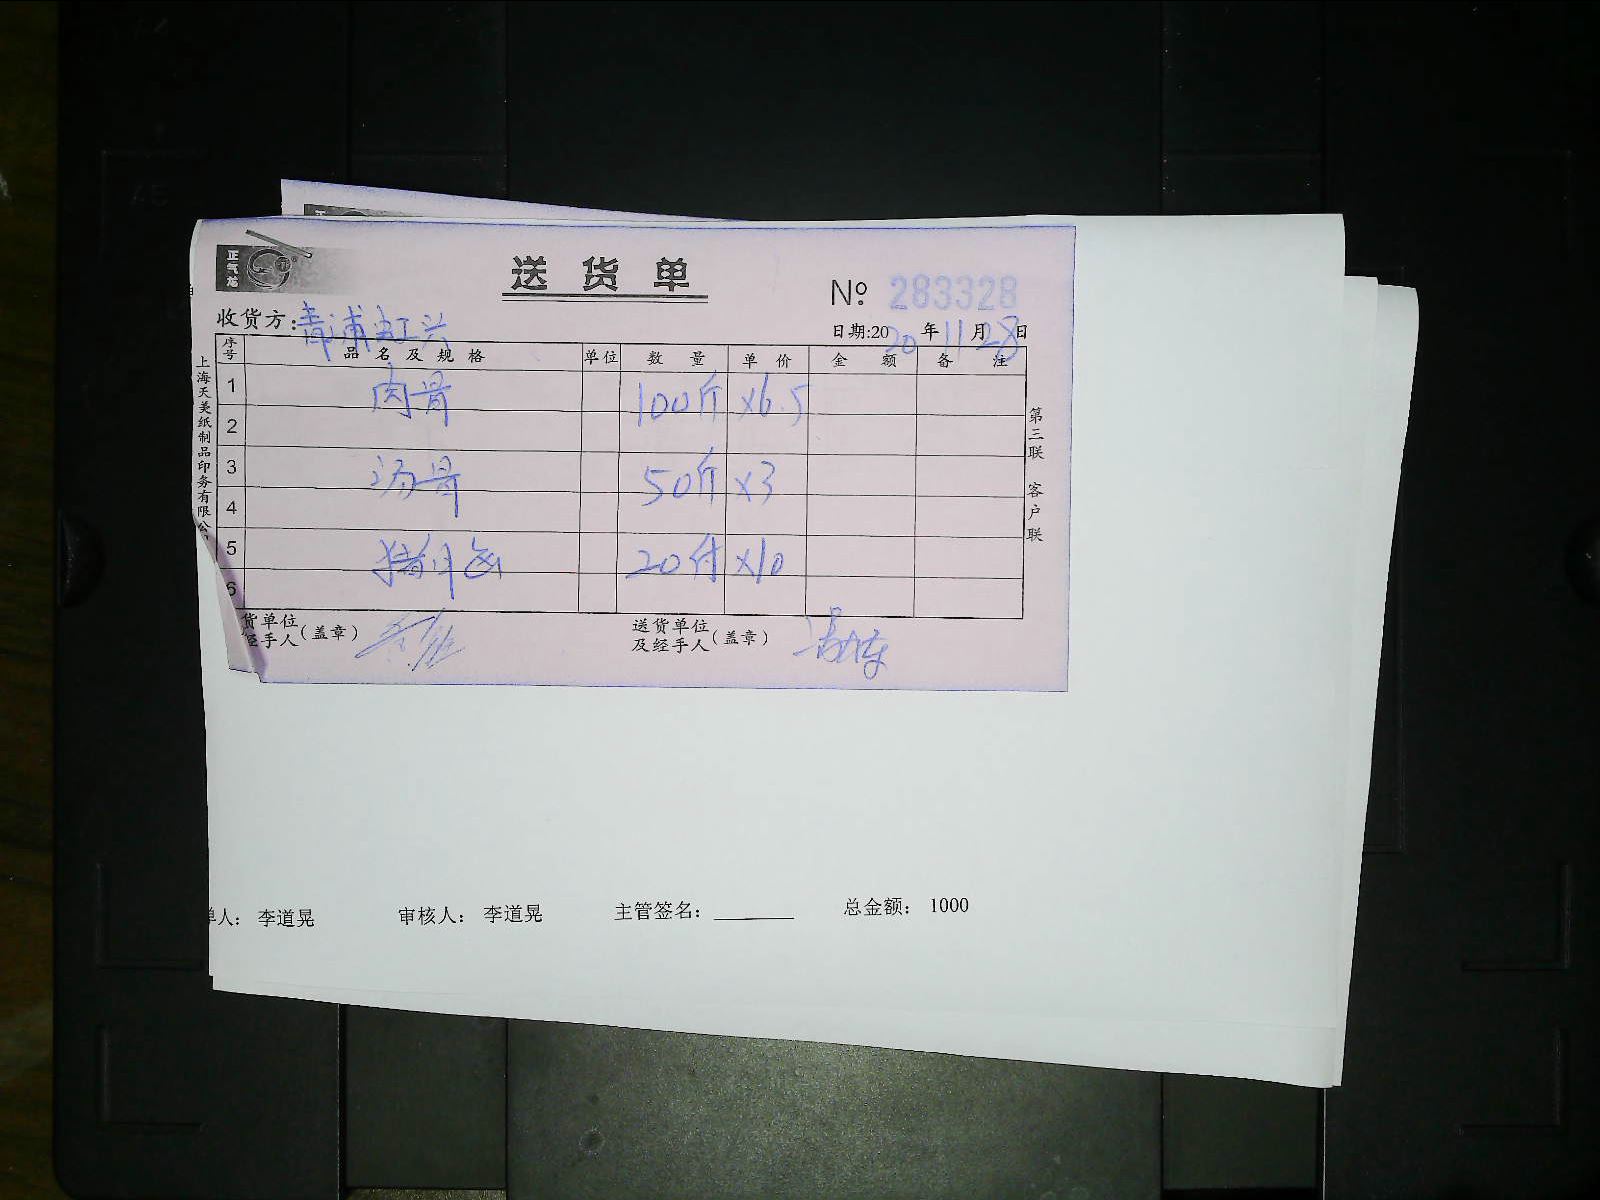 正气龙
送货单
№ 283328
收货方：青浦虹兴
日期:2020年11月28日
序号 品名及规格 单位 数量 单价 金额 备注
1 肉骨 100斤 ×6.5
2
3 汤骨 50斤 ×3
4
5 猪月 20付 ×10
6
货单位
经手人（盖章）
送货单位
及经手人（盖章）
上海天美纸制品印务有限公
第三联 客户联
单人： 李道晃 审核人： 李道晃 主管签名： 总金额： 1000